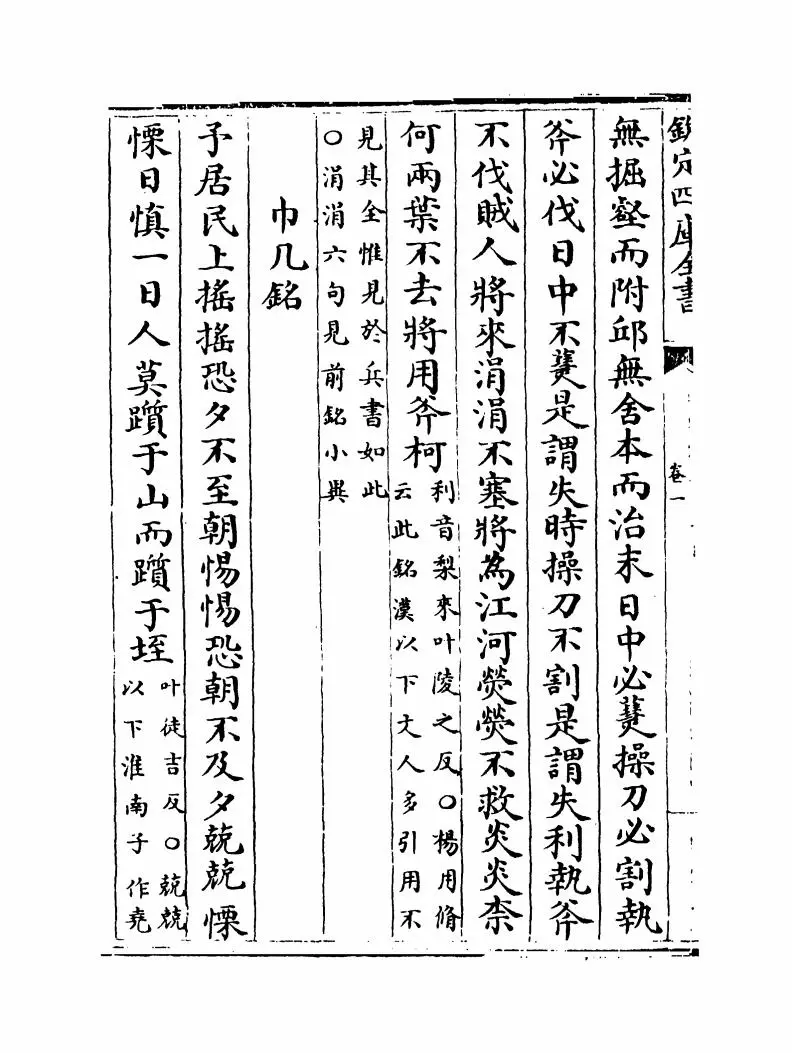 欽定四庫全書
卷一
無掘壑而附邱無舍本而治末日中必熭操刀必割執
斧必伐日中不熭是謂失時操刀不割是謂失利執斧
不伐賊人將來涓涓不塞將為江河熒熒不救炎炎柰
何兩葉不去將用斧柯
利音梨來叶陵之反○楊用脩
云此銘漢以下文人多引用不
見其全惟見於兵書如此
○涓涓六句見前銘小異
巾几銘
予居民上搖搖恐夕不至朝惕惕恐朝不及夕兢兢慄
慄日慎一日人莫躓于山而躓于垤
叶徒吉反○兢兢
以下淮南子作堯